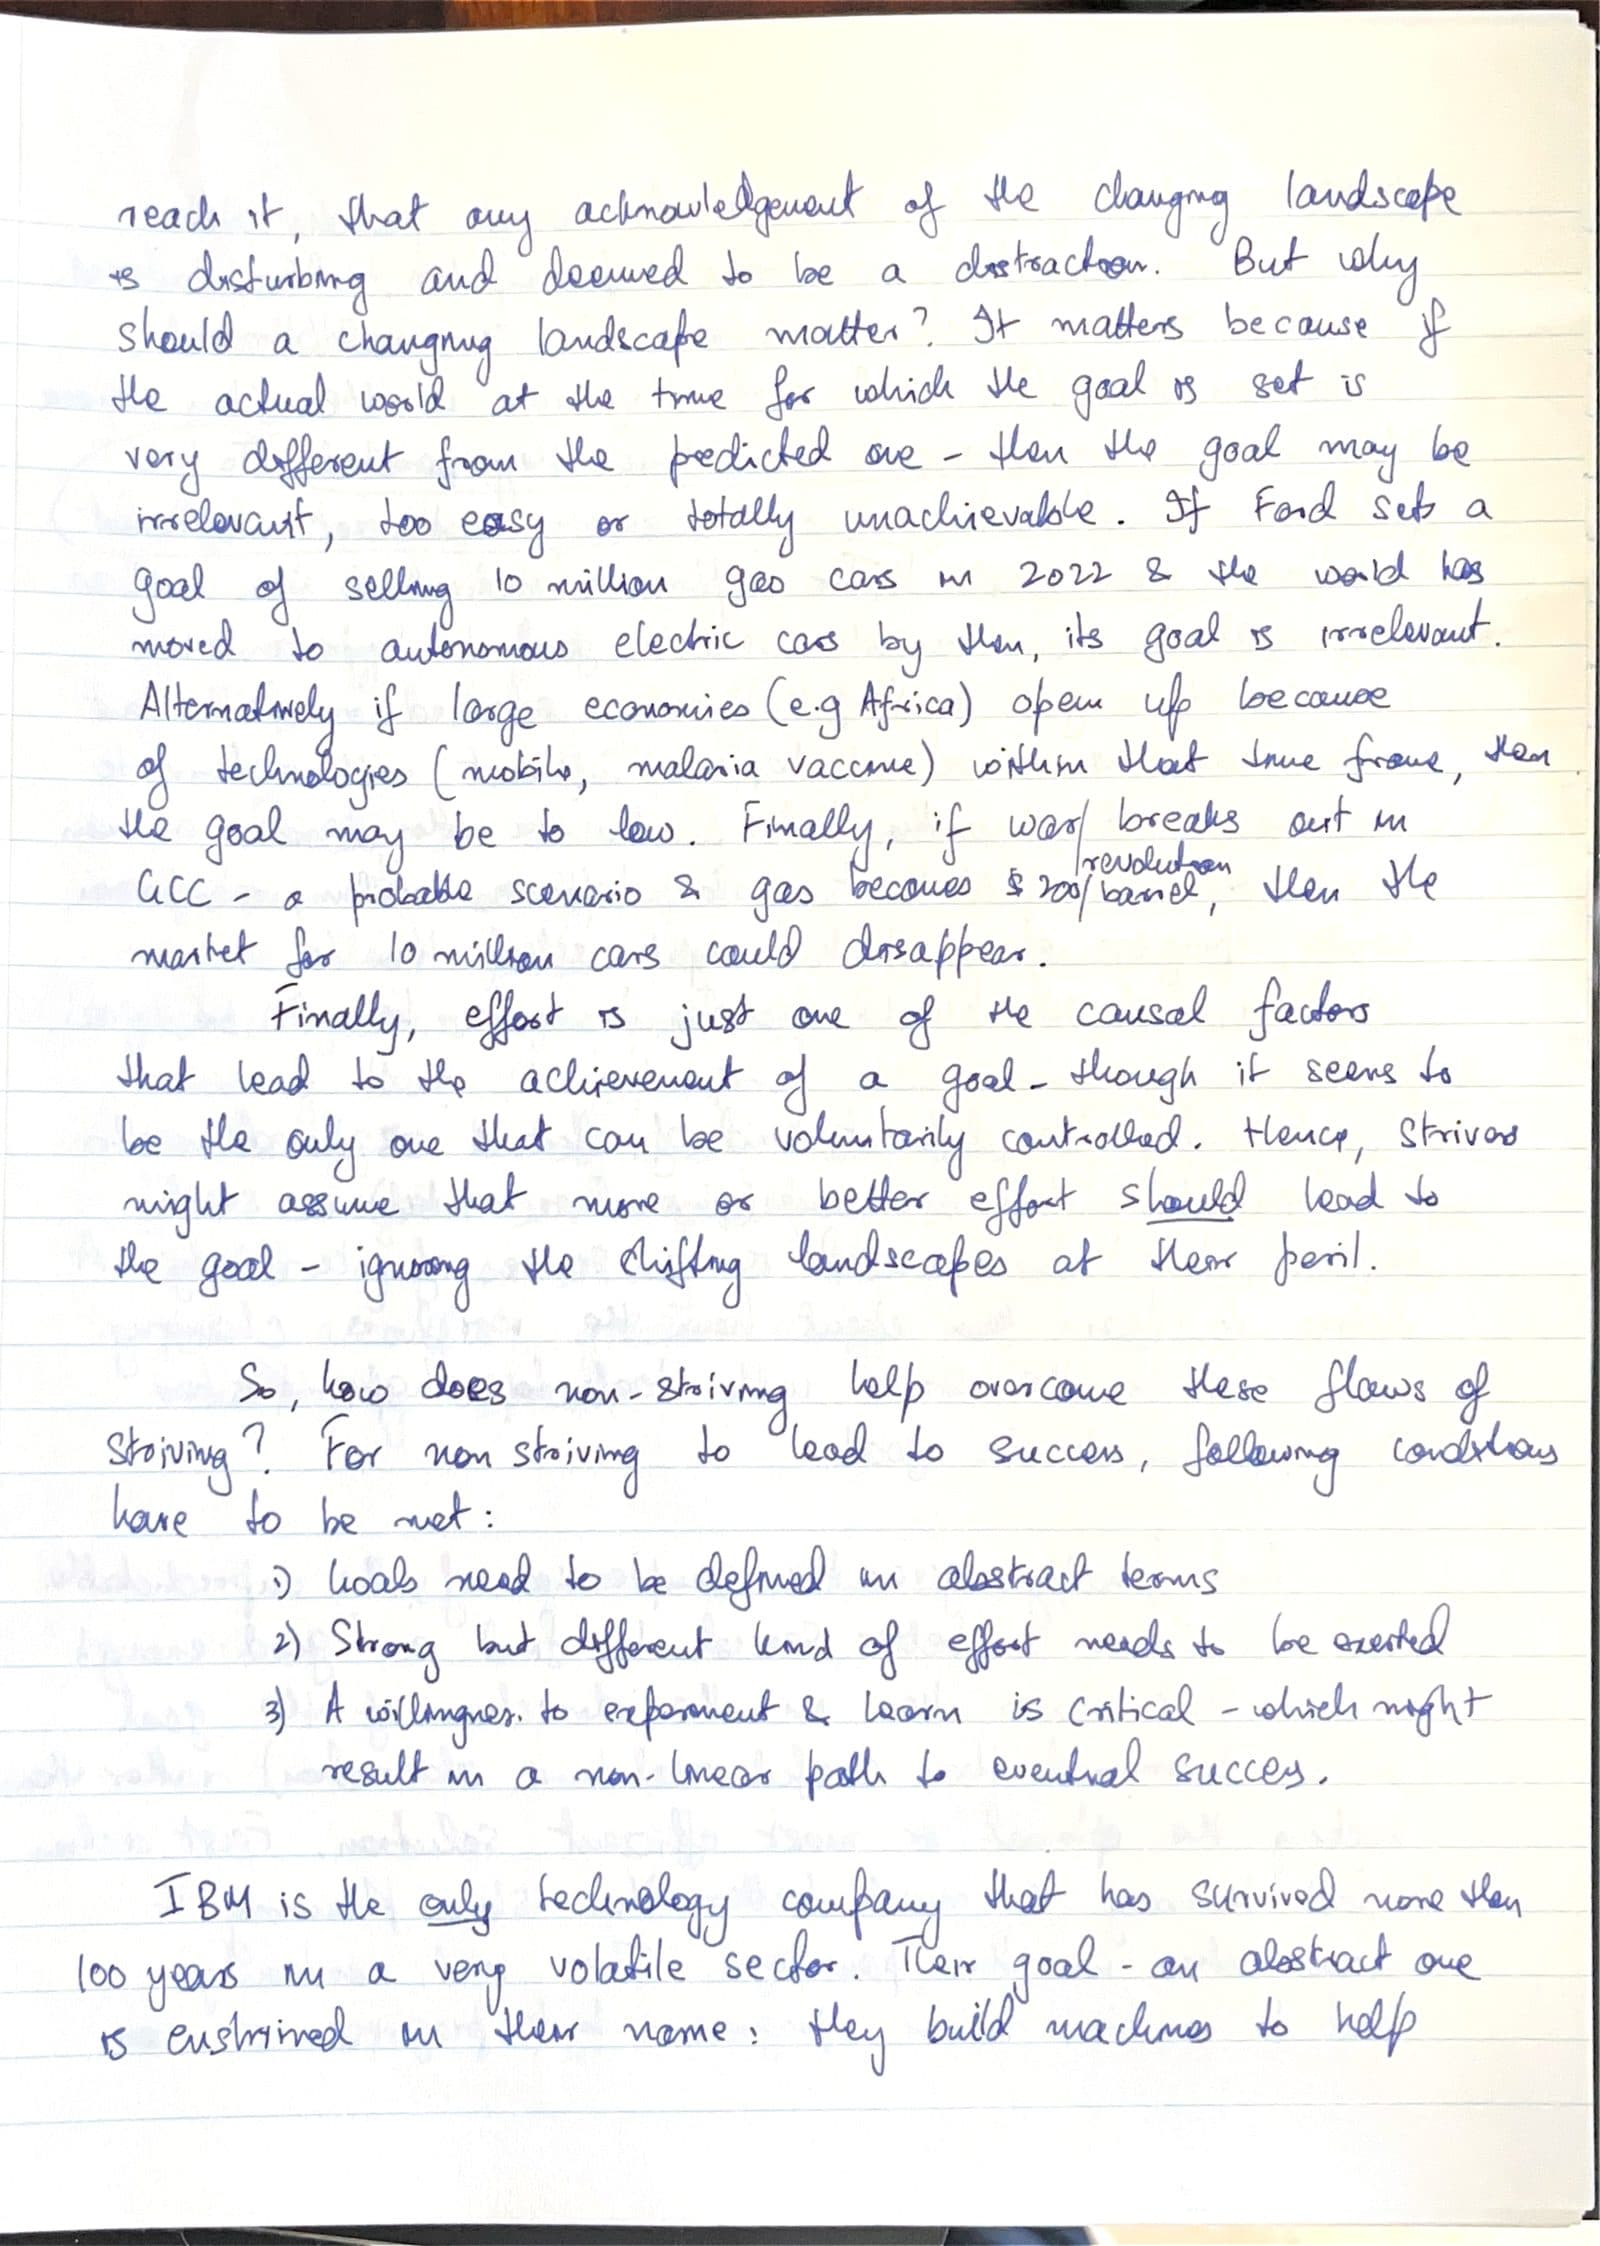 reach it, that any acknowledgement of the changing landscape
is disturbing and deemed to be a distraction. But why
should a changing landscape matter? It matters because if
the actual world at the time for which the goal is set is
very different from the predicted one - then the goal may be
irrelevant, too easy or totally unachievable. If Ford sets a
goal of selling 10 million gas cars in 2022 & the world has
moved to autonomous electric cars by then, its goal is irrelevant.
Alternatively if large economies (e.g Africa) open up because
of technologies (mobile, malaria vaccine) within that time frame, then
the goal may be to low. Finally, if war/ breaks out in
revolution
GCC - a probable scenario & gas becomes $ 200/barrel, then the
market for 10 million cars could disappear.
Finally, effort is just one of the causal factors
that lead to the achievement of a goal - though it seems to
be the only one that can be voluntarily controlled. Hence, strivers
might assume that more or better effort should lead to
the goal - ignoring the shifting landscapes at their peril.
So, how does non-striving help overcome these flaws of
striving? For non striving to lead to success, following conditions
have to be met:
1) Goals need to be defined in abstract terms
2) Strong but different kind of effort needs to be exerted
3) A willingness to experiment & learn is critical - which might
result in a non-linear path to eventual success.
IBM is the only technology company that has survived more than
100 years in a very volatile sector. Their goal - an abstract one
is enshrined in their name: they build machines to help